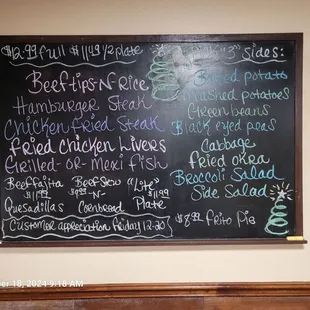 $12.99 full $11.49 1/2 plate
Pick "3" sides:
Beef tips -N- Rice
Hamburger Steak
Chicken Fried Steak
Fried Chicken Livers
Grilled -or- Mexi Fish
potato
mashed potatoes
Green beans
Black eyed peas
Cabbage
Fried okra
Broccoli Salad
Side Salad
Beef Fajita
Quesadillas
Beef Stew
-N-
Cornbread
"Lite"
$11.99
Plate
$8.99 Frito Pie
Customer appreciation Friday 12-20
18, 2024 9:18 AM